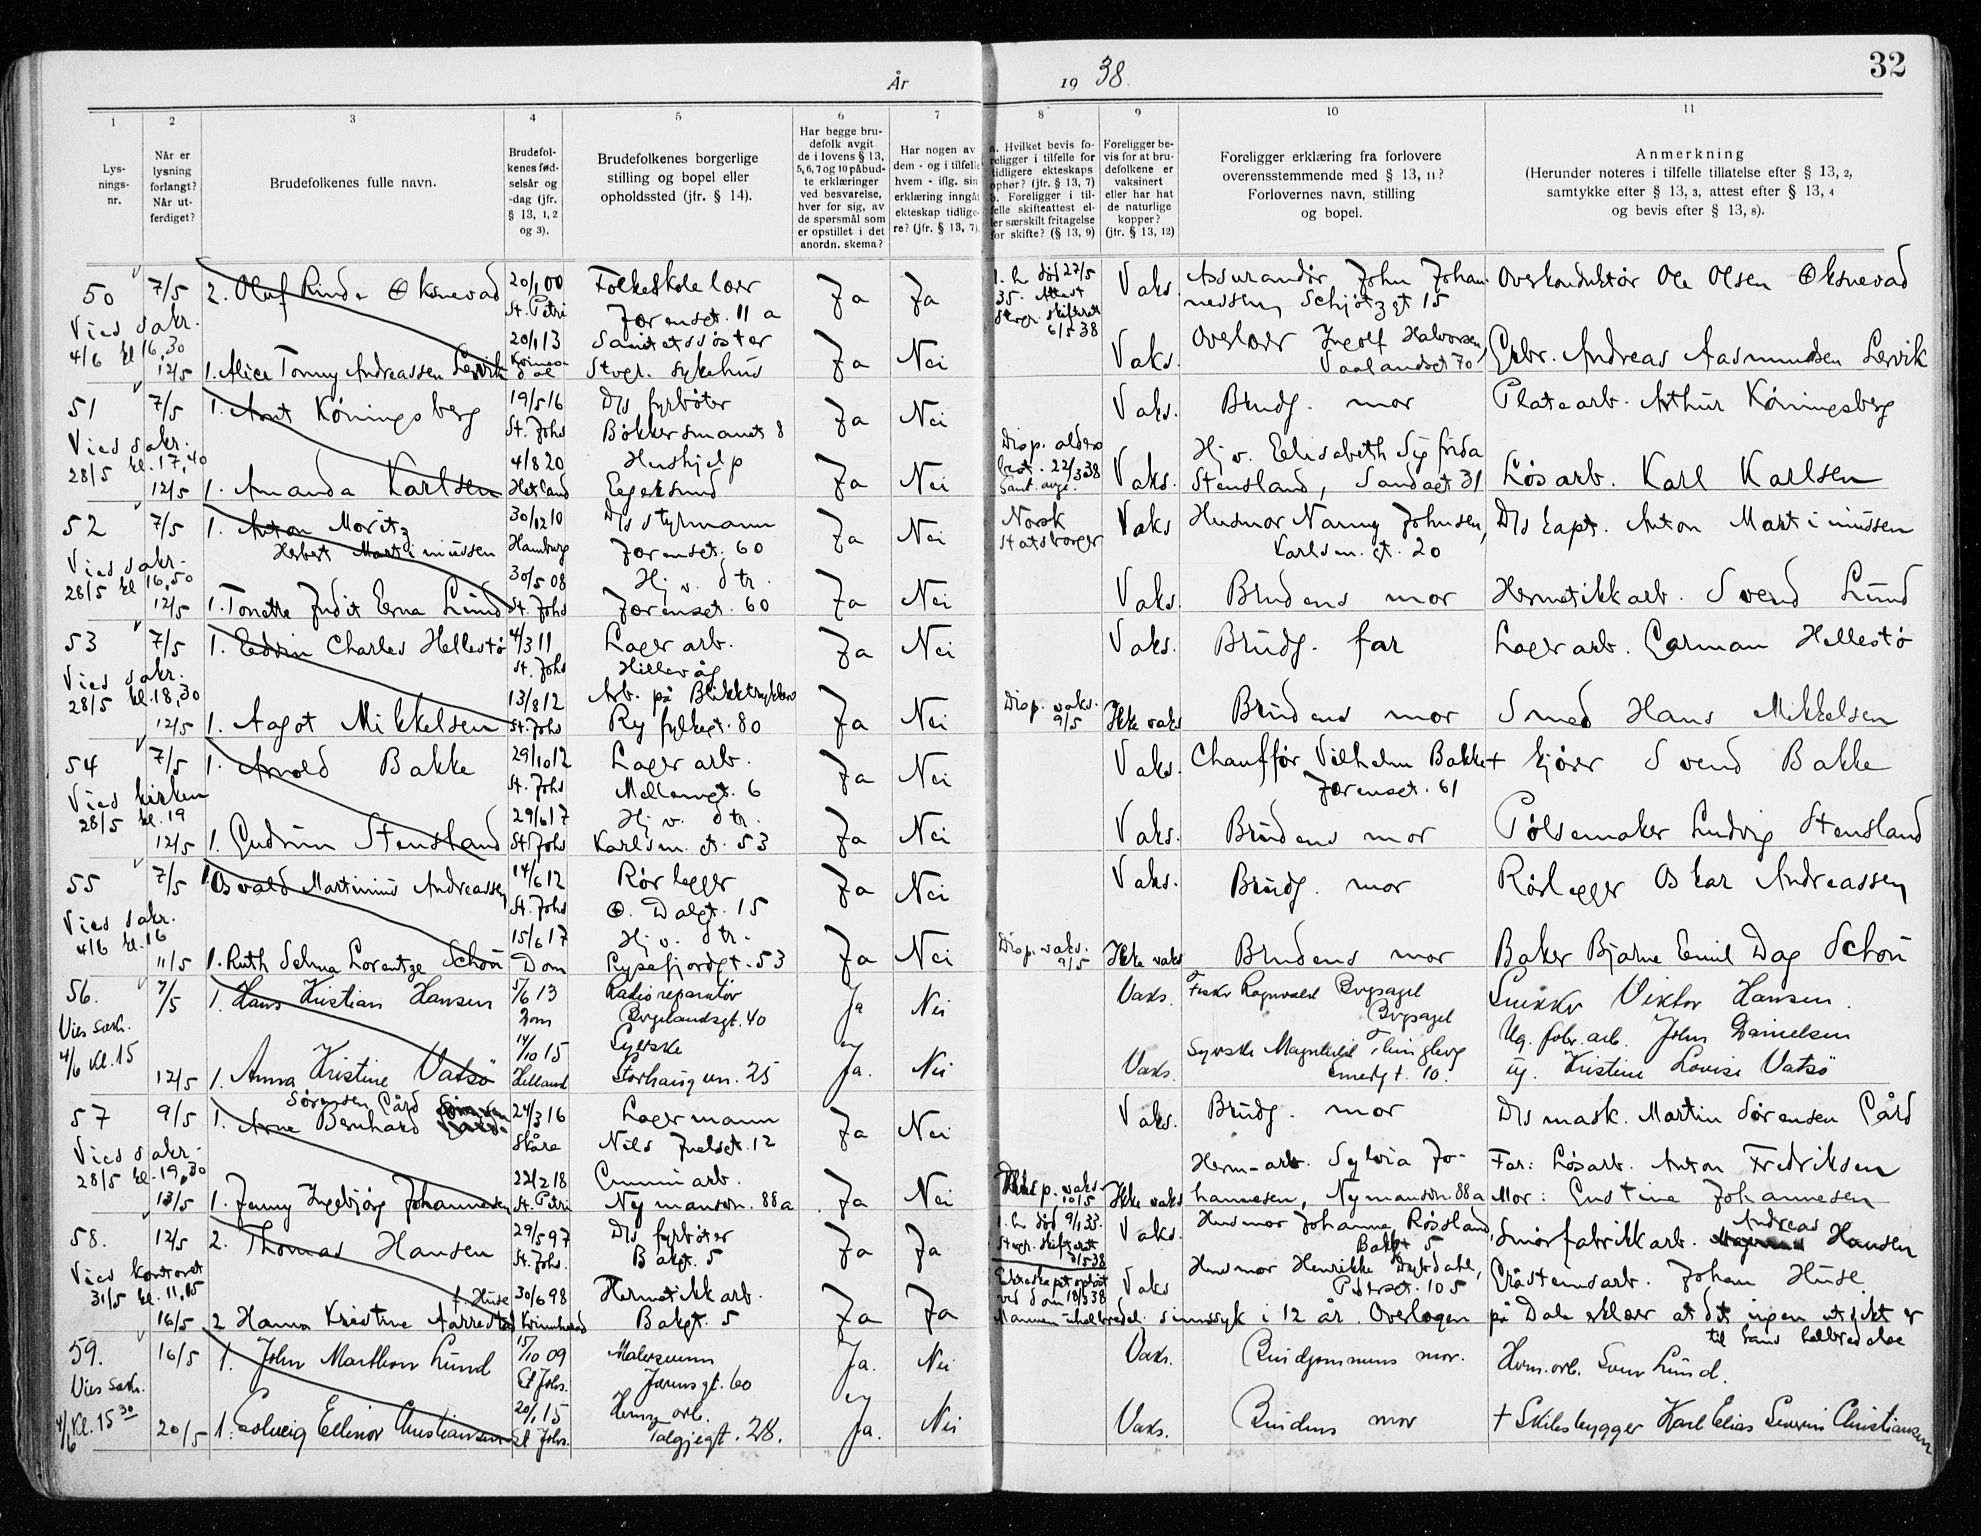 32
År 1938.
1 2 3 4 5 6 7 8 9 10 11
Lys-
nings-
nr.
Når er
lysning
forlangt?
Når ut-
ferdiget?
Brudefolkenes fulle navn.
Brudefol-
kenes fød-
selsår og
-dag (jfr.
§ 13, 1, 2
og 3).
Brudefolkenes borgerlige
stilling og bopel eller
opholdssted (jfr. § 14).
Har begge bru-
defolk avgit
de i lovens § 13,
5, 6, 7 og 10 påbud-
te erklæringer
ved besvarelse,
hver for sig, av
de spørsmål som
er opstillet i det
anordn. skema?
Har nogen av
dem - og i tilfelle
hvem - iflg. sin
erklæring inngåt
ekteskap tidlige-
re? (jfr. § 13, 7).
a. Hvilket bevis fo-
religger i tilfelle for
tidligere ekteskaps
ophør? (jfr. § 13, 7)
b. Foreligger i til-
felle skifteattest el-
ler særskilt fritagelse
for skifte? (§ 13, 9)
Foreligger be-
vis for at bru-
defolkene er
vaksinert
eller har hat
de naturlige
kopper?
(jfr. § 13, 12)
Foreligger erklæring fra forlovere
overensstemmende med § 13, 11?
Forlovernes navn, stilling
og bopel.
Anmerkning
(Herunder noteres i tilfelle tillatelse efter § 13, 2,
samtykke efter § 13, 3, attest efter § 13, 4
og bevis efter § 13, 8).
50 7/5 2. Olaf Rinde Øksnevad 20/1 00 Folkeskolelærer Ja Ja 1. h. død 27/5 Vaks. Assurandør John Johan- Overkonduktør Ole Olsen Øksnevad
St. Petri Jærenset. 11 a 35. Attest nessen, Schjøtzgt 15
Vied sakr. Stvgr. skifterett
4/6 kl 16,30 20/1 13 Sanitetssøster 6/5 38 Overlærer Ingolf Halvorsen,
12/5 1. Alice Tonny Andreassen Lervik Kvines- Stvgr. sykehus Ja Nei Vaks. Vaalandset 70 Grbr. Andreas Aasmundsen Lervik
dal
51 7/5 1. Arnt Køningsberg 19/5 16 D/s fyrbøter Ja Nei Vaks. Brudg. mor Platearb. Arthur Køningsberg
Vied sakr. St. Johs Bøkkersmauet 8
28/5 kl. 17,40 4/8 20 Hushjelp Disp. alders Hj v. Elisabeth Sigfrida
12/5 1. Amanda Karlsen Hetland Egersund Ja Nei 22/3 38 Vaks. Stensland, Sandaet 31 Løsarb. Karl Karlsen
52 7/5 1. Anton Moritz 30/12 10 D/s styrmann Ja Nei Norsk Vaks Husmor Nanny Johnsen, D/s kapt. Anton Martiniussen
Herbert Martiniussen Hamburg Jærenset. 60 statsborger Karlsm. gt. 20
Vied sakr.
28/5 kl 16,50 30/5 08 Hj v. dtr.
12/5 1. Tonette Judit Erna Lund St. Johs Jærenset. 60 Ja Nei Vaks. Brudens mor Hermetikkarb. Svend Lund
53 7/5 1. Eddin Charles Hellestø 4/3 11 Lagerarb. Ja Nei Vaks. Brudg. far Lagerarb. Carman Hellestø
Vied sakr. St. Johs Hillevåg
28/5 kl. 18,30 13/8 12 Arb. på Blikktrykkeri Disp. vaks.
12/5 1. Aagot Mikkelsen St. Johs Ryfylkegt. 80 Ja Nei 9/5 Ikke vaks Brudens mor Smed Hans Mikkelsen
54 7/5 1. Arnold Bakke 29/10 12 Lagerarb. Ja Nei Vaks. Chauffør Vilhelm Bakke + kjører Svend Bakke
Vied kirken St. Johs Mellomgt. 6 Jærenset. 61
28/5 kl. 19 29/6 17 Hj v. dtr.
12/5 1. Gudrun Stensland St Johs Karlsm. gt. 53 Ja Nei Vaks. Brudens mor Pølsemaker Ludvig Stensland
55 7/5 1. Osvald Martinius Andreassen 14/6 12 Rørlegger Ja Nei Vaks. Brudg. mor Rørlegger Oskar Andreassen
Vied sakr. St. Johs Ø. Dalgt. 15
4/6 kl. 16 15/6 17 Hj v. dtr. Disp. vaks.
11/5 1. Ruth Selma Lorentze Schøn Dom Lysefjordgt. 53 Ja Nei 9/5 Ikke vaks Brudens mor Baker Bjarne Emil Dag Schøn
56. 7/5 1. Hans Kristian Hansen 5/6 13 Radioreparatør Ja Nei Vaks. Fisker Ragnvald Bogsagel Snikker Viktor Hansen.
Vies sakr. Dom Bergelandsgt. 40
4/6 Kl. 15 14/10 15 Syerske Syerske Magnhild Ug. fabr. arb. John Danielsen
12/5 1. Anna Kristine Vatsø Hetland Storhaug un. 25 Ja. Nei Vaks. Smedgt. 10. ug. Kristine Lovise Vatsø
57 9/5 1. Arne Bernhard Sørensen Gård 24/3 16 Lagermann Ja Nei Vaks. Brudg. mor D/s mask. Martin Sørensen Gård
Vied sakr. Skåre Nils Juelsgt. 12
28/5 kl. 19,30 22/2 18 Gummiarb. Disp. vaks. Herm-arb. Sylvia Jo- Far: Løsarb. Anton Fredriksen
13/5 1. Jenny Ingebjørg Johannesen St. Petri Nymansv. 88a Ja Nei 10/5 Ikke vaks hannesen, Nymansv. 88a Mor: Gustine Johannesen
58. 12/5 2. Thomas Hansen 29/5 97 D/s fyrbøter Ja Ja 1. h. død 9/1 33. Vaks. Husmor Johanne Røssland, Smørfabrikkarb. Andreas Hansen
St. Johs. Bakgt. 5 Stvgr. skifterett Bakgt 5
Vied kontoret
31/5 kl. 11,15 f. Huse 30/6 98 Hermetikkarb. Ekteskapet opløst Husmor Henrikke Dybdahl, Gråstensarb. Johan Huse
ved dom 18/3 38 Vaks Pedersgt. 105
16/5 2 Hanna Kristine Aarrestad Kvinnherad Bakgt. 5 Ja Ja Mannen uhelbredel. sinnssyk i 12 år. Overlægen på Dale erklær at det ingen utsikt er
til hans helbredelse
59. 16/5 1. John Marthon Lund 15/10 09 Malersvenn Ja. Nei Vaks. Brudgommens mor. Herm. arb. Sven Lund.
Vies sakr. St Johs. Jærensgt. 60
4/6 Kl. 15 30 20/1 15 Herm. arb.
20/5 1. Solveig Ellinor Christiansen St Johs. Talgjegt. 28. Ja. Nei Vaks. Brudens mor + Skibsbygger Karl Elias Severin Christiansen